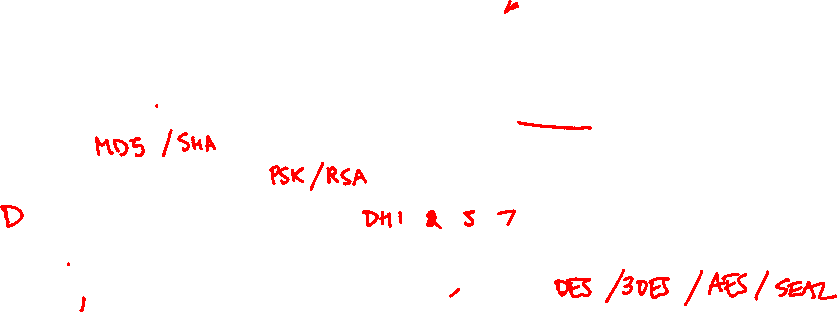 MD5 / SHA
PSK / RSA
D DH1 2 5 7
DES / 3DES / AES / SEAL